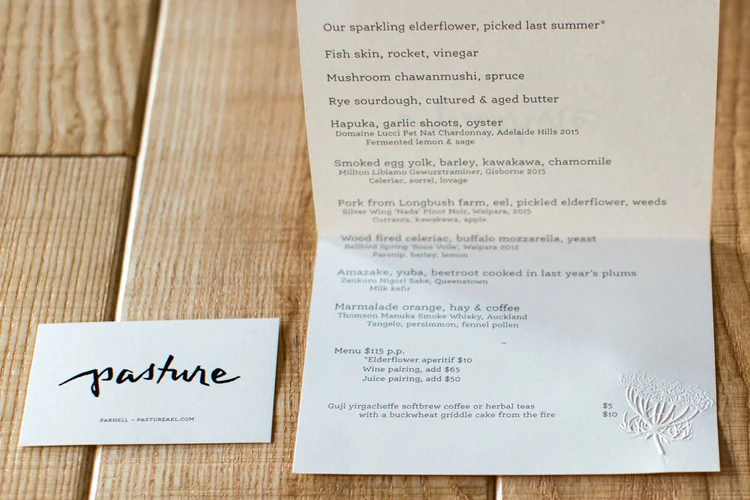 Our sparkling elderflower, picked last summer*
Fish skin, rocket, vinegar
Mushroom chawanmushi, spruce
Rye sourdough, cultured & aged butter
Hapuka, garlic shoots, oyster
Domaine Lucci Pet Nat Chardonnay, Adelaide Hills 2015
Fermented lemon & sage
Smoked egg yolk, barley, kawakawa, chamomile
Millton Libiamo Gewurztraminer, Gisborne 2015
Celeriac, sorrel, lovage
Pork from Longbush farm, eel, pickled elderflower, weeds
Silver Wing 'Nada' Pinot Noir, Waipara, 2015
Currants, kawakawa, apple
Wood fired celeriac, buffalo mozzarella, yeast
Bellbird Spring 'Sous Voile', Waipara 2012
Parsnip, barley, lemon
Amazake, yuba, beetroot cooked in last year's plums
Zenkuro Nigori Sake, Queenstown
Milk kefir
Marmalade orange, hay & coffee
Thomson Manuka Smoke Whisky, Auckland
Tangelo, persimmon, fennel pollen
Menu $115 p.p.
*Elderflower aperitif $10
Wine pairing, add $65
Juice pairing, add $50
Guji yirgacheffe softbrew coffee or herbal teas $5
with a buckwheat griddle cake from the fire $10
pasture
PARNELL – PASTUREAKL.COM